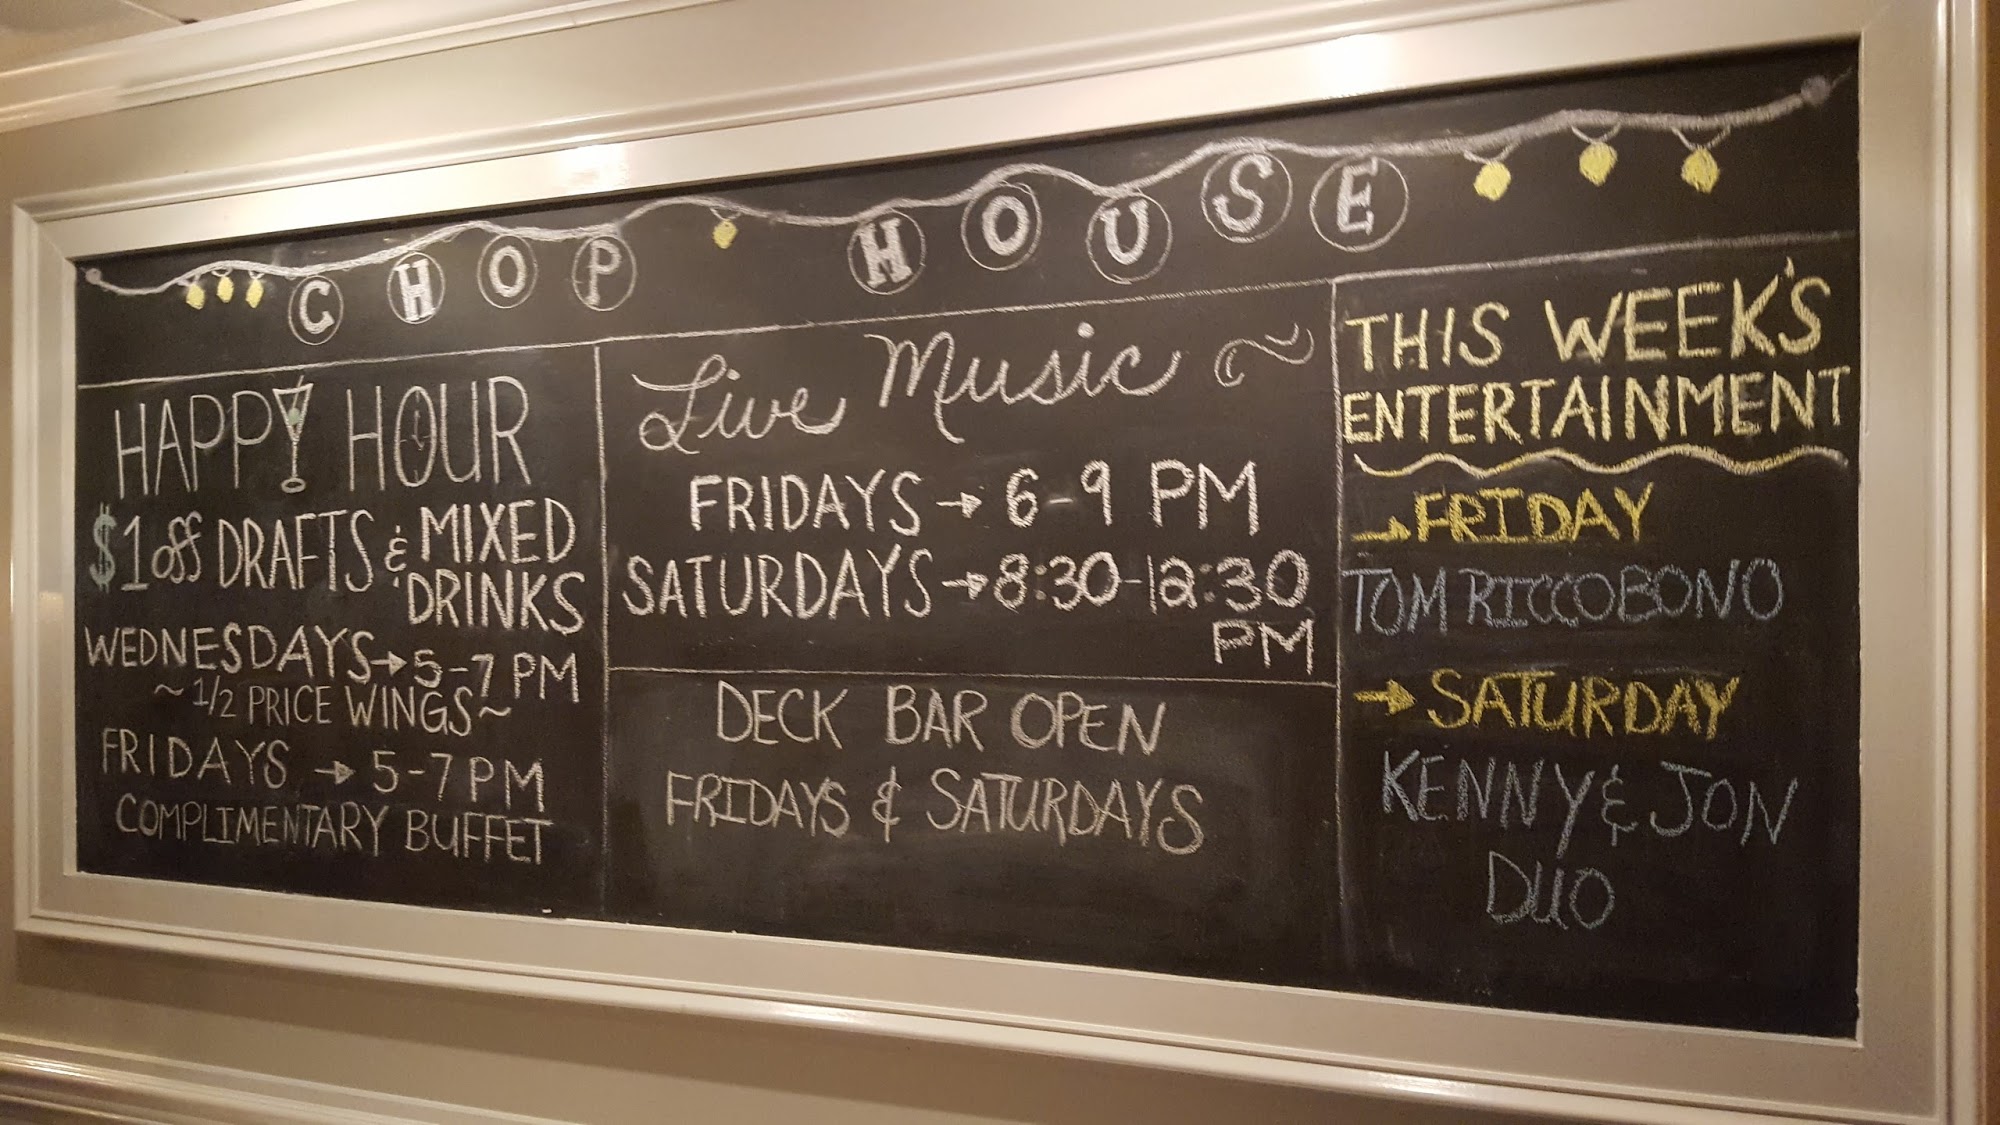 CHOP HOUSE
HAPPY HOUR
$1 off DRAFTS & MIXED
DRINKS
WEDNESDAYS→5-7 PM
~ 1/2 PRICE WINGS ~
FRIDAYS → 5-7 PM
COMPLIMENTARY BUFFET
Live Music ~
FRIDAYS → 6-9 PM
SATURDAYS → 8:30-12:30
PM
DECK BAR OPEN
FRIDAYS & SATURDAYS
THIS WEEK'S
ENTERTAINMENT
→ FRIDAY
TOM RICCOBONO
→ SATURDAY
KENNY & JON
DUO